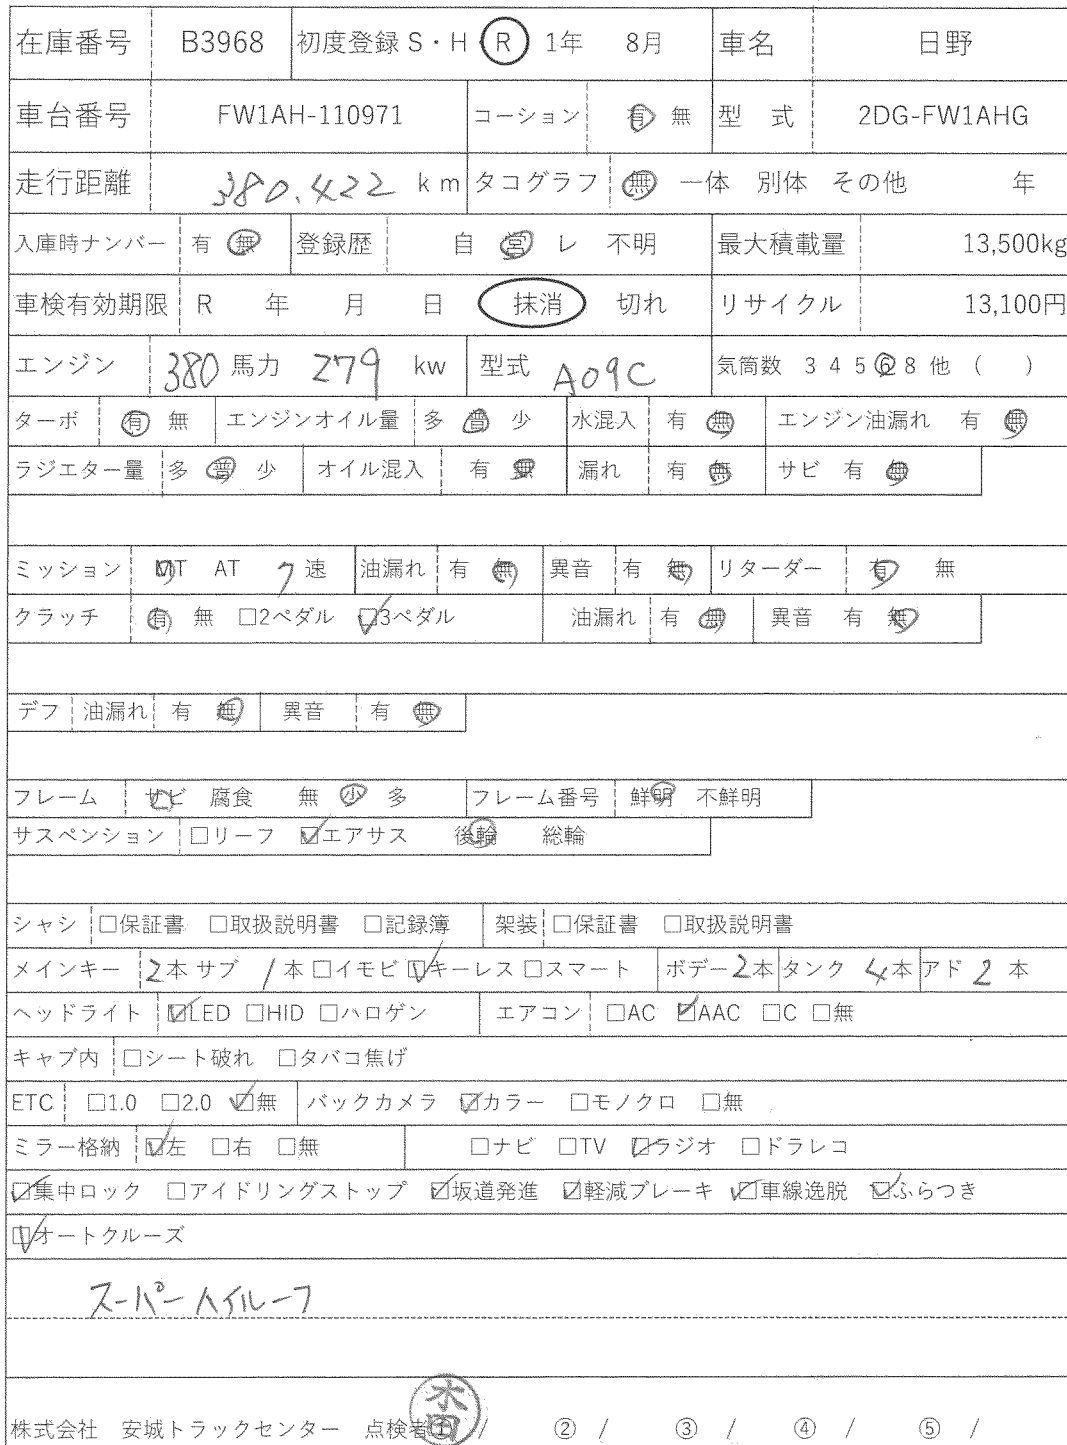 在庫番号 B3968 初度登録 S・H・R 1年 8月 車名 日野
車台番号 FW1AH-110971 コーション 有 無 型 式 2DG-FW1AHG
走行距離 380.422 km タコグラフ 無 一体 別体 その他 年
入庫時ナンバー 有 無 登録歴 自 営 レ 不明 最大積載量 13,500kg
車検有効期限 R 年 月 日 抹消 切れ リサイクル 13,100円
エンジン 380 馬力 279 kw 型式 A09C 気筒数 3 4 5 6 8 他 ( )
ターボ 有 無 エンジンオイル量 多 普 少 水混入 有 無 エンジン油漏れ 有 無
ラジエター量 多 普 少 オイル混入 有 無 漏れ 有 無 サビ 有 無
ミッション MT AT 7 速 油漏れ 有 無 異音 有 無 リターダー 有 無
クラッチ 有 無 □2ペダル ☑3ペダル 油漏れ 有 無 異音 有 無
デフ 油漏れ 有 無 異音 有 無
フレーム サビ 腐食 無 少 多 フレーム番号 鮮明 不鮮明
サスペンション □リーフ ☑エアサス 後輪 総輪
シャシ □保証書 □取扱説明書 □記録簿 架装 □保証書 □取扱説明書
メインキー 2本 サブ 1本 □イモビ ☑キーレス □スマート ボデー 2本 タンク 4本 アド 2 本
ヘッドライト ☑LED □HID □ハロゲン エアコン □AC ☑AAC □C □無
キャブ内 □シート破れ □タバコ焦げ
ETC □1.0 □2.0 ☑無 バックカメラ ☑カラー □モノクロ □無
ミラー格納 ☑左 □右 □無 □ナビ □TV ☑ラジオ □ドラレコ
☑集中ロック □アイドリングストップ ☑坂道発進 ☑軽減ブレーキ ☑車線逸脱 ☑ふらつき
☑オートクルーズ
スーパーハイルーフ
株式会社 安城トラックセンター 点検者① / ② / ③ / ④ / ⑤ /